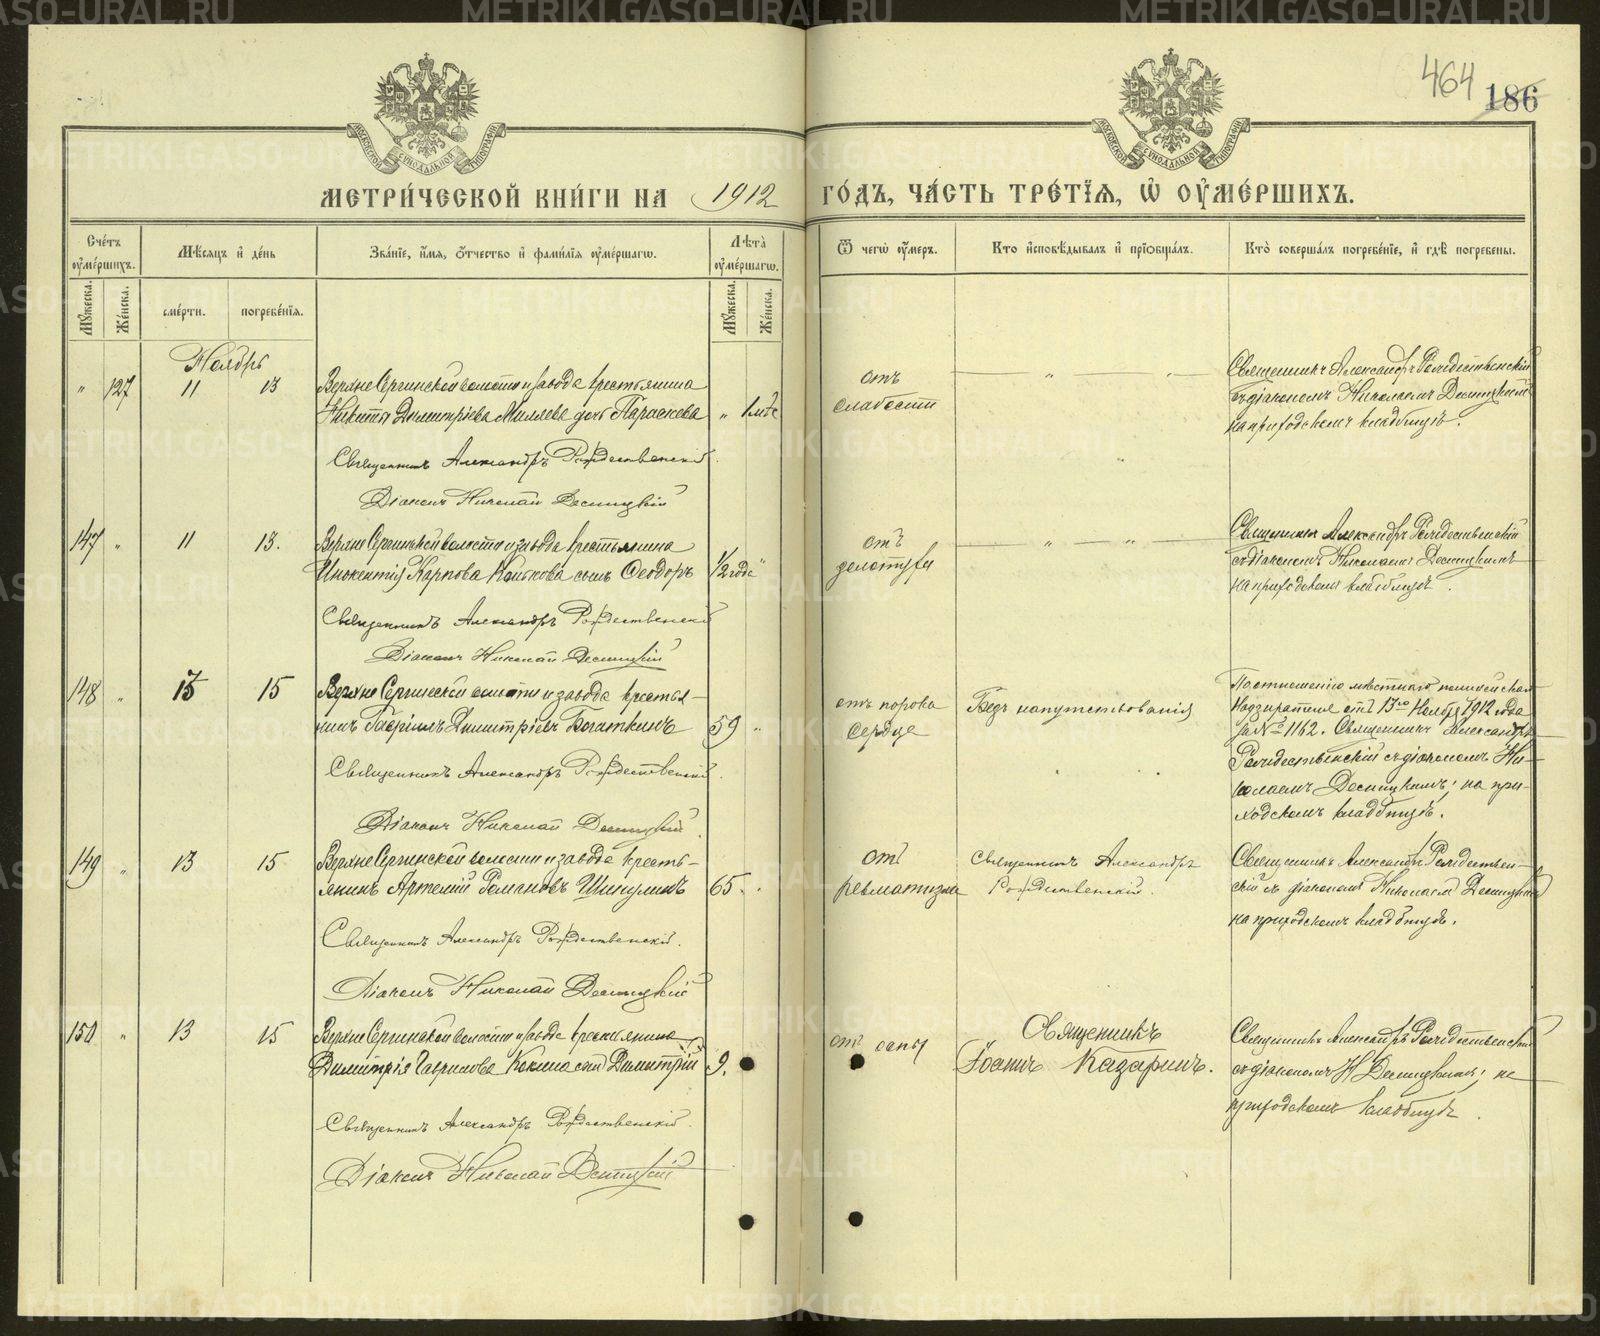 464
186
МОСКОВСКОЙ СѴНОДАЛЬНОЙ ТИПОГРАФІИ
МОСКОВСКОЙ СѴНОДАЛЬНОЙ ТИПОГРАФІИ
МЕТРИ́ЧЕСКОЙ КНИ́ГИ НА 1912 ГО́ДЪ, ЧА́СТЬ ТРЕ́ТІѦ, Ѡ҆ ОУ҆МЕ́РШИХЪ.
Сче́тъ оу҆ме́ршихъ.
Мѣсѧцъ и҆ де́нь
Зва́нїе, и҆́мѧ, ѻ҆́тчество и҆ фами́лїѧ оу҆ме́ршагѡ.
Лѣта̀ оу҆ме́ршагѡ.
Ѿ чегѡ̀ оу҆́мерлъ.
Кто̀ и҆сповѣ́дывалъ и҆ прїѻбща́лъ.
Кто̀ соверша́лъ погребе́нїе, и҆ гдѣ̀ погребены̀.
Мꙋ́жеска.
Же́нска.
сме́рти.
погребе́нїѧ.
Мꙋ́жеска.
Же́нска.
Ноябрь
" 127 11 13
Верхне Сергинской волости и завода крестьянина
Никиты Димитріева Миляева дочь Параскева " 1 мѣс
Священникъ Александръ Рождественскій.
Діаконъ Николай Десницкій
отъ
слабости
Священникъ Александръ Рождественскій
съ діакономъ Николаемъ Десницкимъ
на приходскомъ кладбищѣ.
147 " 11 13.
Верхне Сергинской волости и завода крестьянина
Инокентія Карпова сынъ Ѳеодоръ 1/2 года "
Священникъ Александръ Рождественскій
Діаконъ Николай Десницкій
отъ
Священникъ Александръ Рождественскій
съ діакономъ Николаемъ Десницкимъ
на приходскомъ кладбищѣ.
148 " 13 15
Верхне Сергинской волости и завода крестья-
нинъ Гавріилъ Димитріевъ Богаткинъ 59 "
Священникъ Александръ Рождественскій.
Діаконъ Николай Десницкій.
отъ порока
сердца
Безъ напутствованія
По отношенію мѣстнаго полицейскаго
Надзирателя отъ 13го Ноября 1912 года
за № 1162. Священникъ Александръ
Рождественскій съ діакономъ Ни-
колаемъ Десницкимъ, на при-
ходскомъ кладбищѣ.
149 " 13 15
Верхне Сергинской волости и завода кресть-
янинъ Артемій Романовъ Шикулинъ 65 "
Священникъ Александръ Рождественскій.
Діаконъ Николай Десницкій
отъ
ревматизма
Священникъ Александръ
Рождественскій.
Священникъ Александръ Рождествен-
скій съ діакономъ Николаемъ Десницкимъ
на приходскомъ кладбищѣ.
150 " 13 15
Верхне Сергинской волости и завода крестьянина
Димитрія Гаврилова Кокина сынъ Димитрій 9.
Священникъ Александръ Рождественскій.
Діаконъ Николай Десницкій
отъ оспы
Священникъ
Іоаннъ Казаринъ.
Священникъ Александръ Рождественскій
съ діакономъ Н Десницкимъ, на
приходскомъ кладбищѣ.
METRIKI.GASO-URAL.RU